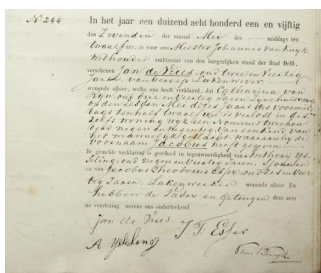 No 244
In het jaar een duizend acht honderd een en vijftig
den Zevenden der maand Mei des middags ten
twaalf ure, is voor ons Meester Johannes van Kuyk
Wethouder ambtenaar van den burgerlijken stand der Stad Delft,
verschenen Jan de Vries, oud twee en veertig
Jaren, van beroep Lakenwever
wonende alhier, welke ons heeft verklaard, dat Catharina van
Rijn, oud en veertig Jaren, zijne huisvrouw
op den zesden Mei dezes jaars des voormid-
dags ten half twaalf ure bevallen is in des-
zelfs woning wijk een Nommer
van
het mannelijk geslacht, waaraan hij de
voornaam Jacobus heeft gegeven
De gemelde verklaring is geschied in tegenwoordigheid van Anthony Ys-
seling, oud negen en veertig Jaren,
en van Jacobus Theodorus Esser, oud zes en veer-
tig Jaren, Lakenwerker wonende alhier. En
hebben de Vader en Getuigen deze acte
na voorlezing nevens ons onderteekend.
Jan de Vries
J T Esser
A Ysseling